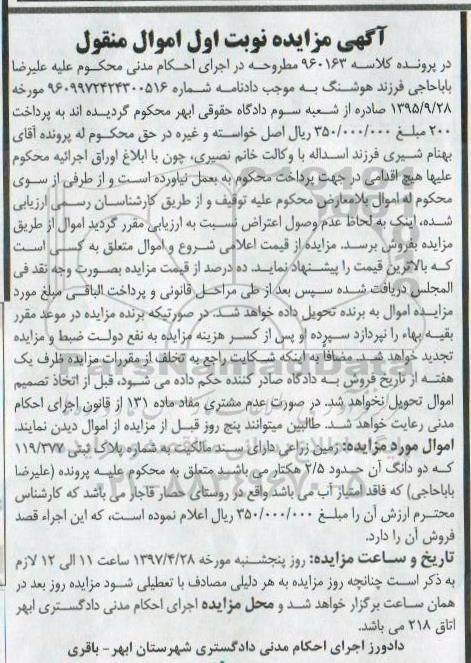 آگهی مزایده نوبت اول اموال منقول
در پرونده کلاسه ۹۶۰۱۶۳ مطروحه در اجرای احکام مدنی محکوم علیه علیرضا
باباحاجی فرزند هوشنگ به موجب دادنامه شماره ۹۶۰۹۹۷۲۴۲۴۳۰۰۵۱۶ مورخه
۱۳۹۵/۹/۲۸ صادره از شعبه سوم دادگاه حقوقی ابهر محکوم گردیده اند به پرداخت
۲۰۰ مبلغ ۳۵۰/۰۰۰/۰۰۰ ریال اصل خواسته و غیره در حق محکوم له پرونده آقای
بهنام شیری فرزند اسداله با وکالت خانم نصیری، چون با ابلاغ اوراق اجرائیه محکوم
علیها هیچ اقدامی در جهت پرداخت محکوم به بعمل نیاورده است و از طرفی از سوی
محکوم له اموال بلامعارض محکوم علیه توقیف و از طریق کارشناسان رسمی ارزیابی
شده، اینک به لحاظ عدم وصول اعتراض نسبت به ارزیابی مقرر گردید اموال از طریق
مزایده بفروش برسد. مزایده از قیمت اعلامی شروع و اموال متعلق به کسی است
که بالاترین قیمت را پیشنهاد نماید. ده درصد از قیمت مزایده بصورت وجه نقد فی
المجلس دریافت شده سپس بعد از طی مراحل قانونی و پرداخت الباقی مبلغ مورد
مزایده اموال به برنده تحویل داده خواهد شد. در صورتیکه برنده مزایده در موعد مقرر
بقیه بهاء را نپردازد سپرده او پس از کسر هزینه مزایده به نفع دولت ضبط و مزایده
تجدید خواهد شد. مضافاً به اینکه شکایت راجع به تخلف از مقررات مزایده ظرف یک
هفته از تاریخ فروش به دادگاه صادر کننده حکم داده می شود، قبل از اتخاذ تصمیم
اموال تحویل نخواهد شد. در صورت عدم مشتری مفاد ماده ۱۳۱ از قانون اجرای احکام
مدنی رعایت خواهد شد. طالبین میتوانند پنج روز قبل از مزایده از اموال دیدن نمایند.
اموال مورد مزایده: زمین زراعی دارای سند مالکیت به شماره پلاک ثبتی ۱۱۹/۳۷۷
که دو دانگ آن حدود ۲/۵ هکتار می باشید متعلق به محکوم علیه پرونده (علیرضا
باباحاجی) که فاقد امتیاز آب می باشد واقع در روستای حصار قاجار می باشد که کارشناس
محترم ارزش آن را مبلغ ۳۵۰/۰۰۰/۰۰۰ ریال اعلام نموده است، که این اجراء قصد
فروش آن را دارد.
تاریخ و ساعت مزایده: روز پنجشنبه مورخه ۱۳۹۷/۴/۲۸ ساعت ۱۱ الی ۱۲ لازم
به ذکر است چنانچه روز مزایده به هر دلیلی مصادف با تعطیلی شود مزایده روز بعد در
همان ساعت برگزار خواهد شد و محل مزایده اجرای احکام مدنی دادگستری ابهر
اتاق ۲۱۸ می باشد.
دادورز اجرای احکام مدنی دادگستری شهرستان ابهر- باقری